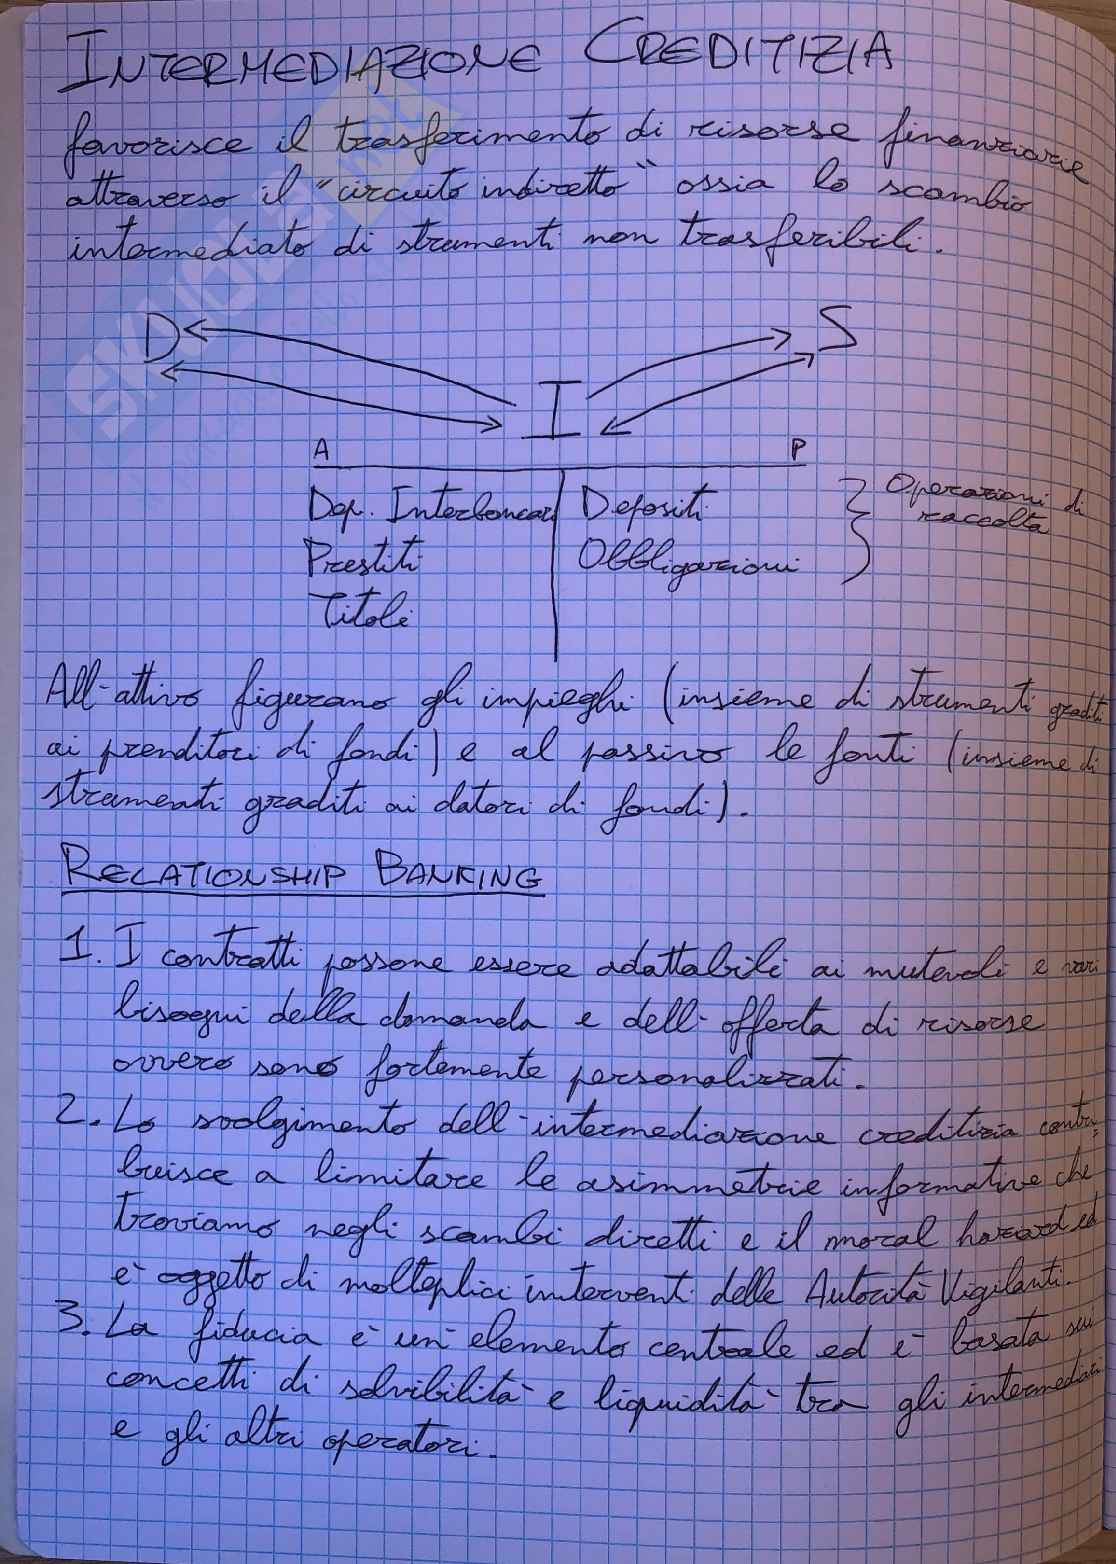 INTERMEDIAZIONE CREDITIZIA
favorisce il trasferimento di risorse finanziarie
attraverso il "circuito indiretto" ossia lo scambio
intermediato di strumenti non trasferibili.
D
S
I
A
P
Dep. Interbancari
Depositi
Operazioni di
raccolta
Prestiti
Obbligazioni
Titoli
All'attivo figurano gli impieghi (insieme di strumenti graditi
ai prenditori di fondi) e al passivo le fonti (insieme di
strumenti graditi ai datori di fondi).
RELATIONSHIP BANKING
1. I contratti possono essere adattabili ai mutevoli e vari
bisogni della domanda e dell'offerta di risorse
ovvero sono fortemente personalizzati.
2. Lo svolgimento dell'intermediazione creditizia contri-
buisce a limitare le asimmetrie informative che
troviamo negli scambi diretti e il moral hazard ed
è oggetto di molteplici interventi delle Autorità Vigilanti.
3. La fiducia è un'elemento centrale ed è basata sui
concetti di solvibilità e liquidità tra gli intermediari
e gli altri operatori.
SKUOLA